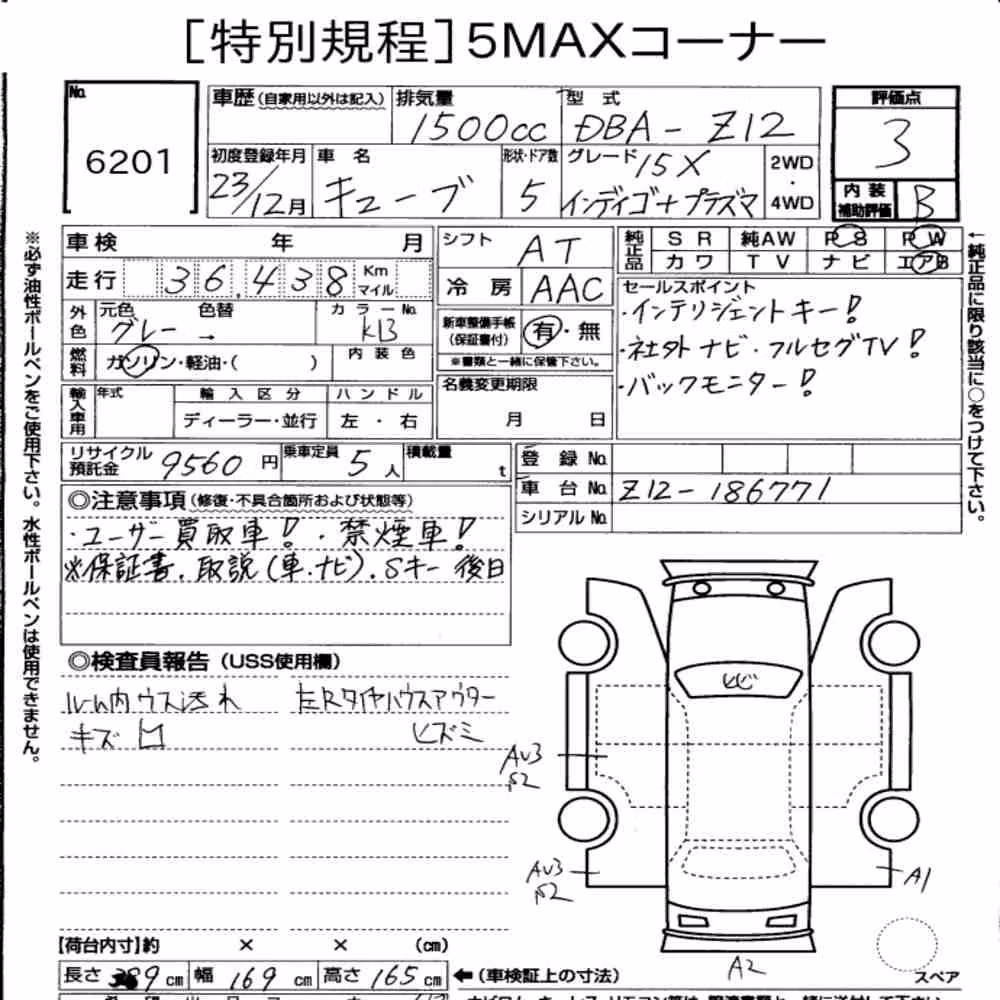 ［特別規程］5MAXコーナー
No.
6201
車歴（自家用以外は記入）
排気量
1500cc
型式
DBA-Z12
評価点
3
初度登録年月
23/12月
車名
キューブ
形状・ドア数
5
グレード 15X
インディゴ+プラズマ
2WD
・
4WD
内装
補助評価
B
車検 年 月
走行 36,438 Km
マイル
外色
元色 色替
グレー →
カラーNo.
K13
燃料
ガソリン・軽油・( )
内装色
輸入車用
年式
輸入区分
ディーラー・並行
ハンドル
左・右
シフト AT
冷房 AAC
新車整備手帳
（保証書付）
有・無
※書類と一緒に保管下さい。
名義変更期限
月 日
純正品
SR 純AW PS PW
カワ TV ナビ エアB
セールスポイント
・インテリジェントキー！
・社外ナビ・フルセグTV！
・バックモニター！
リサイクル
預託金
9560円
乗車定員 5人
積載量 t
登録No.
車台No. Z12-186771
シリアルNo.
◎注意事項（修復・不具合箇所および状態等）
・ユーザー買取車！・禁煙車！
※保証書、取説（車・ナビ）、Sキー 後日
◎検査員報告（USS使用欄）
ルーム内ウス汚れ
キズ
左Rタイヤハウスアウター
ヒズミ
ヒビ
AU3
AU3
A1
A2
スペア
【荷台内寸】約 × × （cm）
長さ cm 幅 169cm 高さ 165cm
←（車検証上の寸法）
※必ず油性ボールペンをご使用下さい。水性ボールペンは使用できません。
←純正品に限り該当に○をつけて下さい。